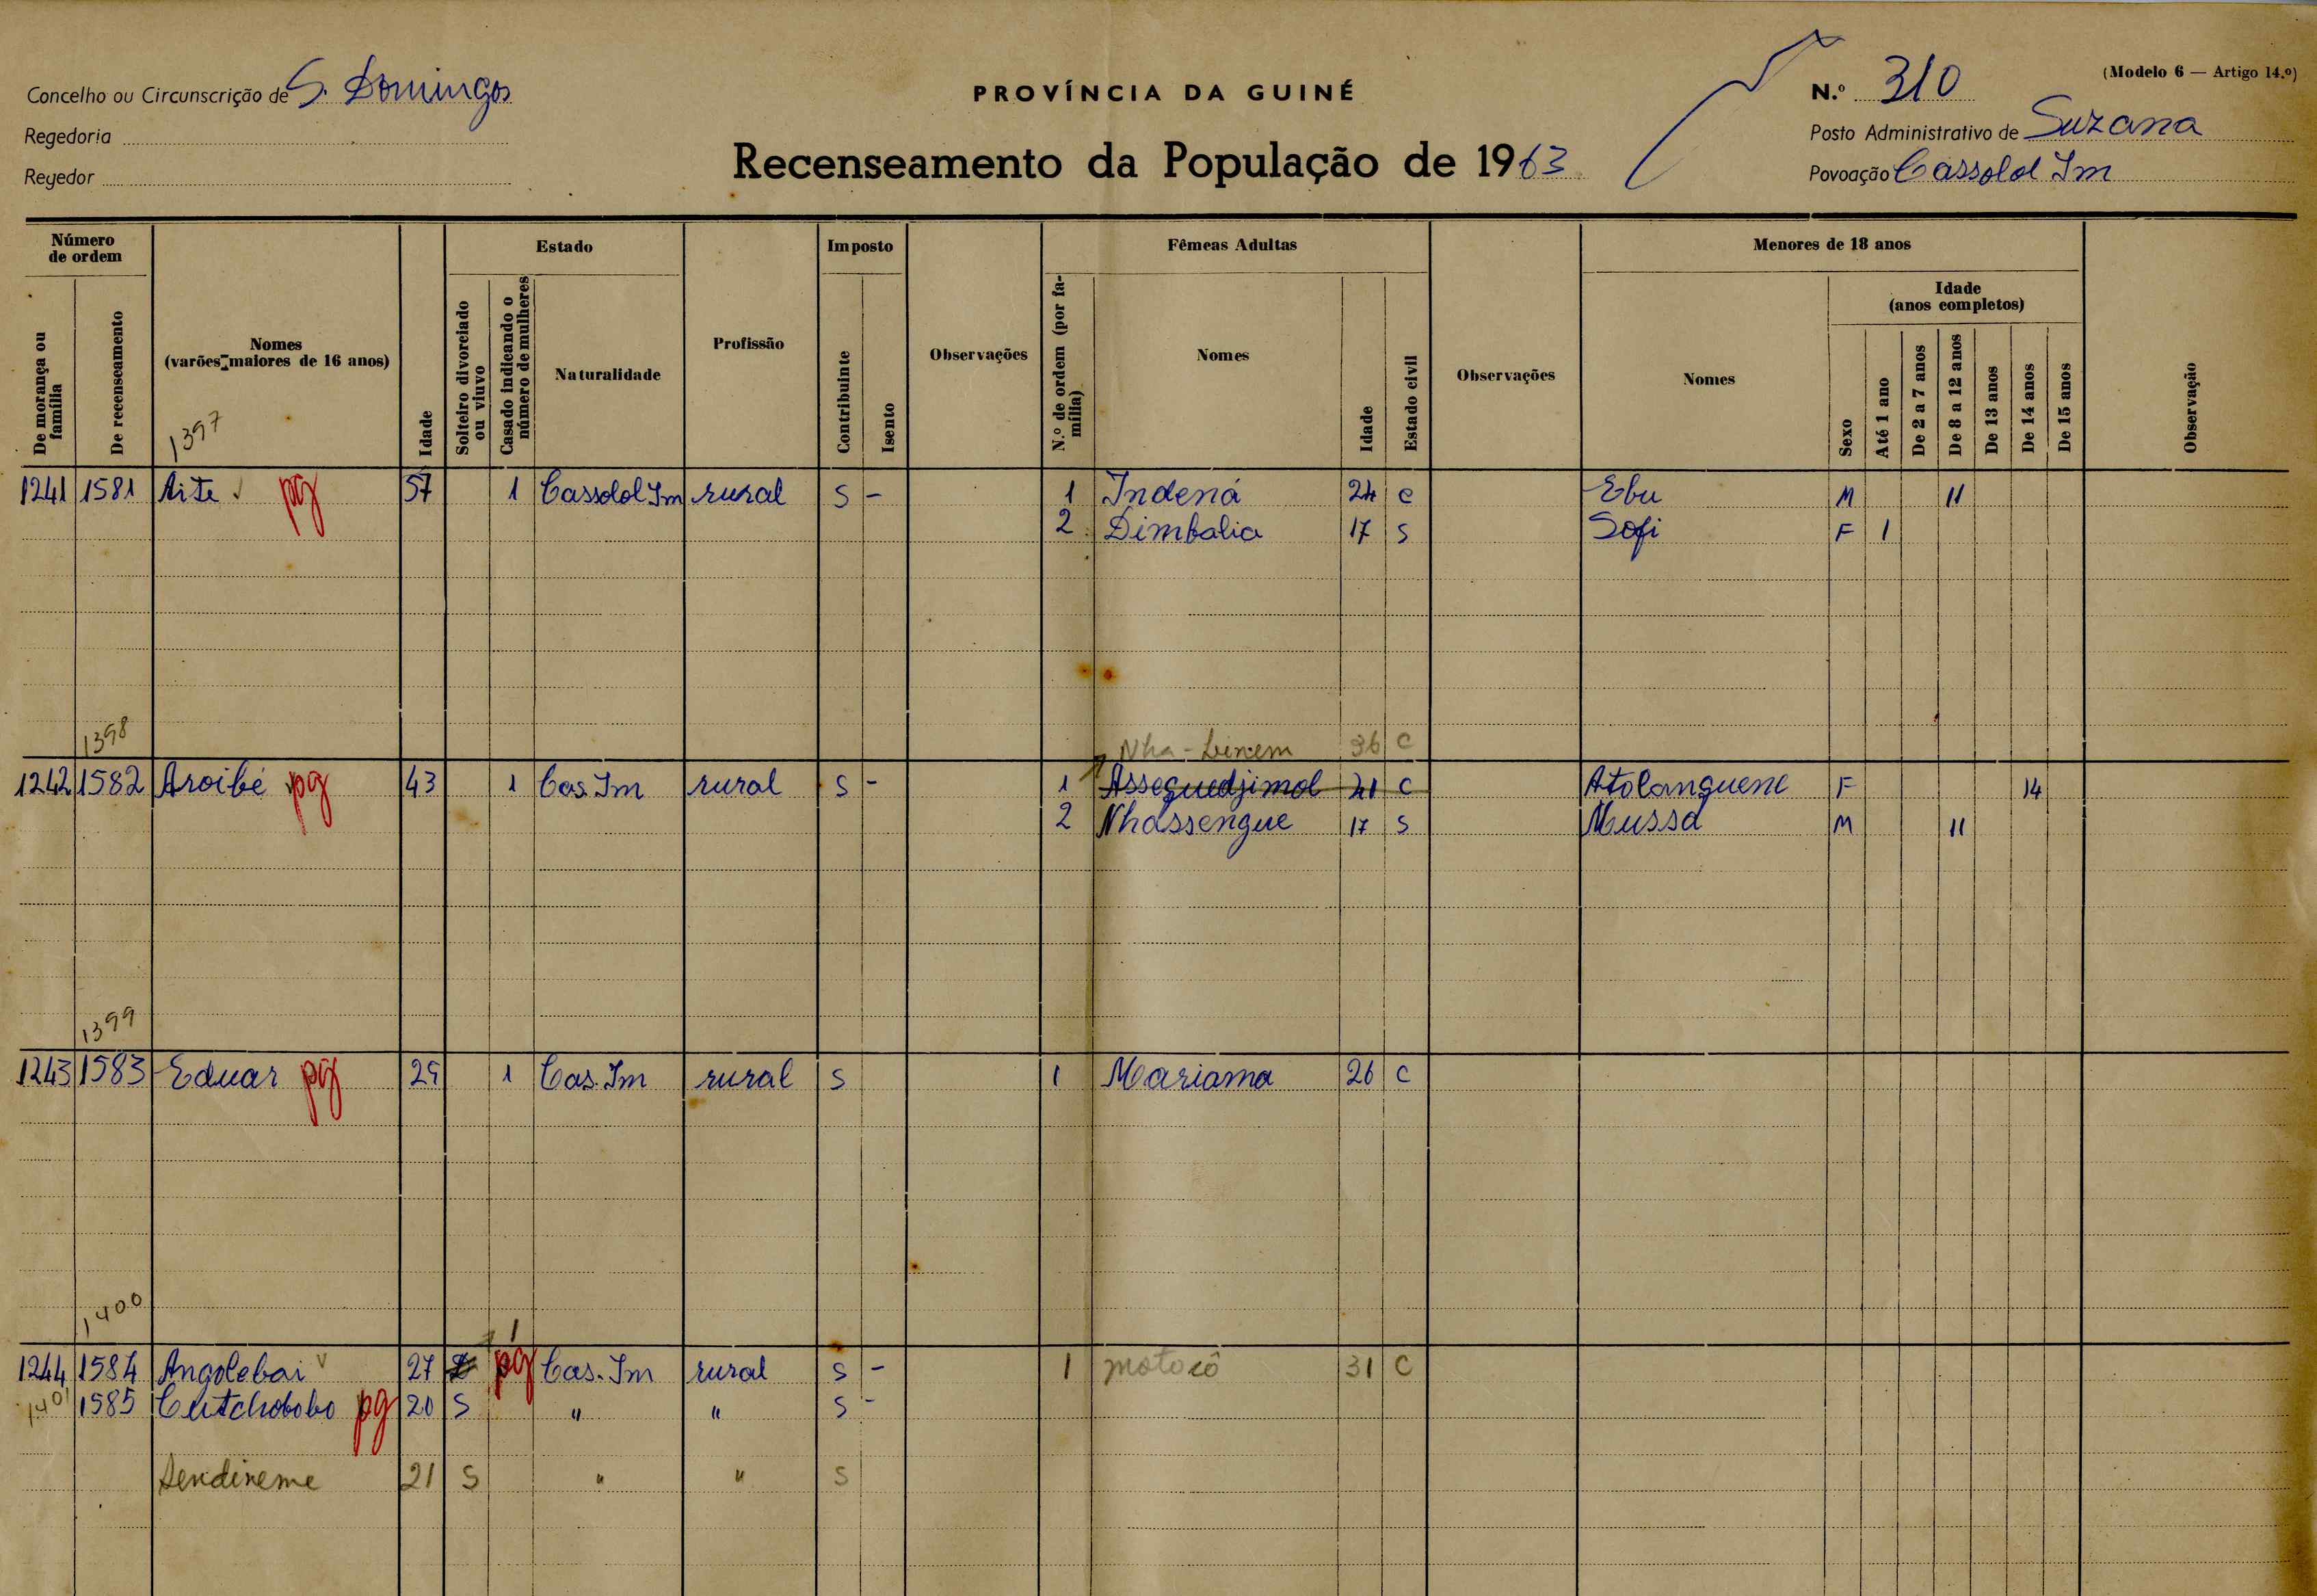 Concelho ou Circunscrição de S. Domingos
Regedoria
Regedor
PROVÍNCIA DA GUINÉ
Recenseamento da População de 1963
(Modelo 6 — Artigo 14.º)
N.º 310
Posto Administrativo de Suzana
Povoação Cassolol Im
Número de ordem
De morança ou família
De recenseamento
Nomes
(varões maiores de 16 anos)
1397
Idade
Estado
Solteiro divorciado ou viuvo
Casado indicando o número de mulheres
Naturalidade
Profissão
Imposto
Contribuinte
Isento
Observações
Fêmeas Adultas
N.º de ordem (por família)
Nomes
Idade
Estado civil
Observações
Menores de 18 anos
Nomes
Sexo
Idade
(anos completos)
Até 1 ano
De 2 a 7 anos
De 8 a 12 anos
De 13 anos
De 14 anos
De 15 anos
Observação
1241 1581 Aite pg 57 1 Cassolol Im rural S - 1 Indená 24 c Ebu M 11
2 Dimbalia 17 S Sofi F 1
1398 Nha-Linem 36 C
1242 1582 Aroibé pg 43 1 Cas. Im rural S - 1 Asseguedjimol 21 C Atolanguene F 14
2 Nhassengue 17 S Mussa M 11
1399
1243 1583 Eduar pg 29 1 Cas. Im rural S 1 Mariama 26 C
1400 1
1244 1584 Angolebai 27 pg Cas. Im rural S - 1 motocô 31 C
1401 1585 Cutchobobo pg 20 S " " S -
Sendineme 21 S " " S